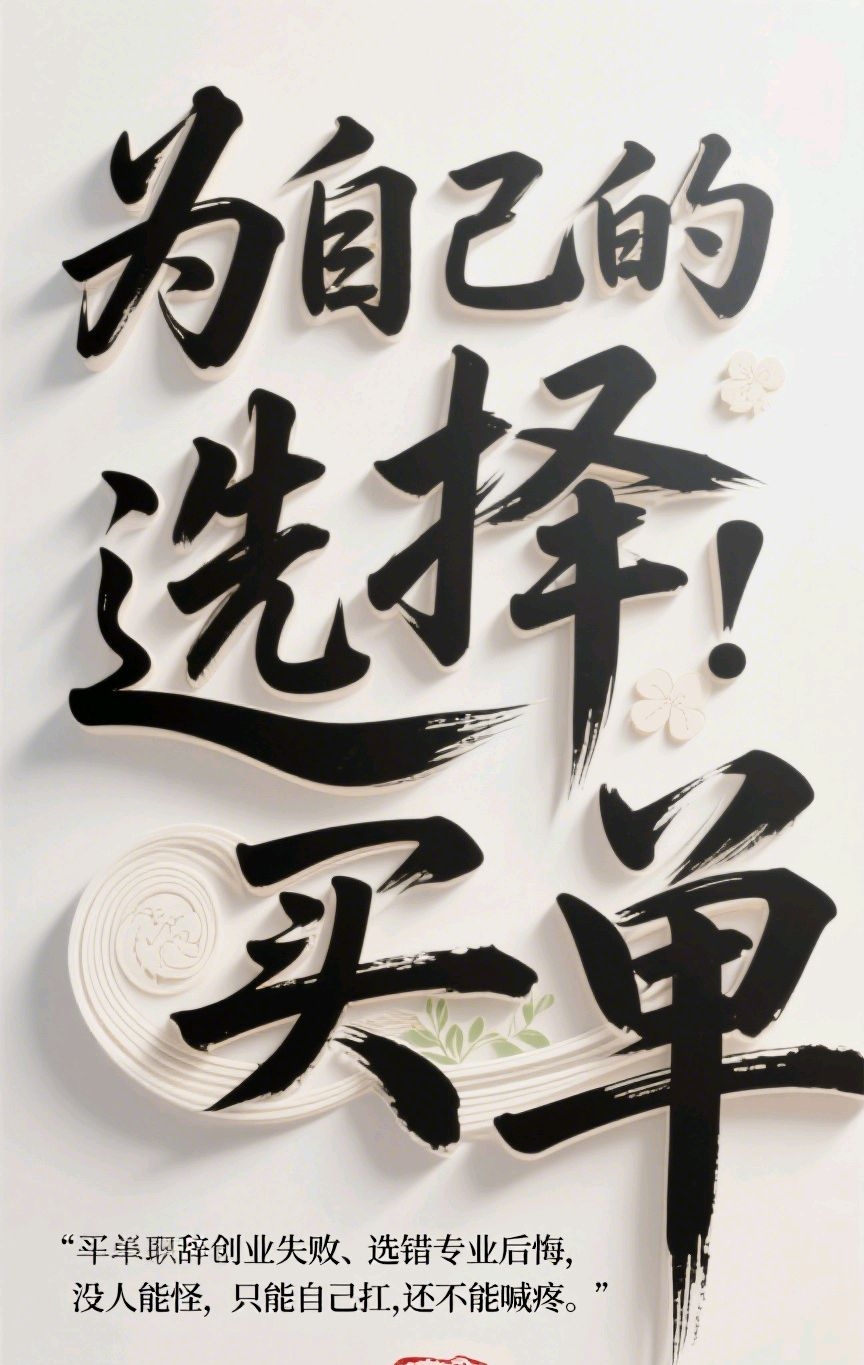 为自己的
选择！
买单
“职辞创业失败、选错专业后悔，
没人能怪，只能自己扛，还不能喊疼。”